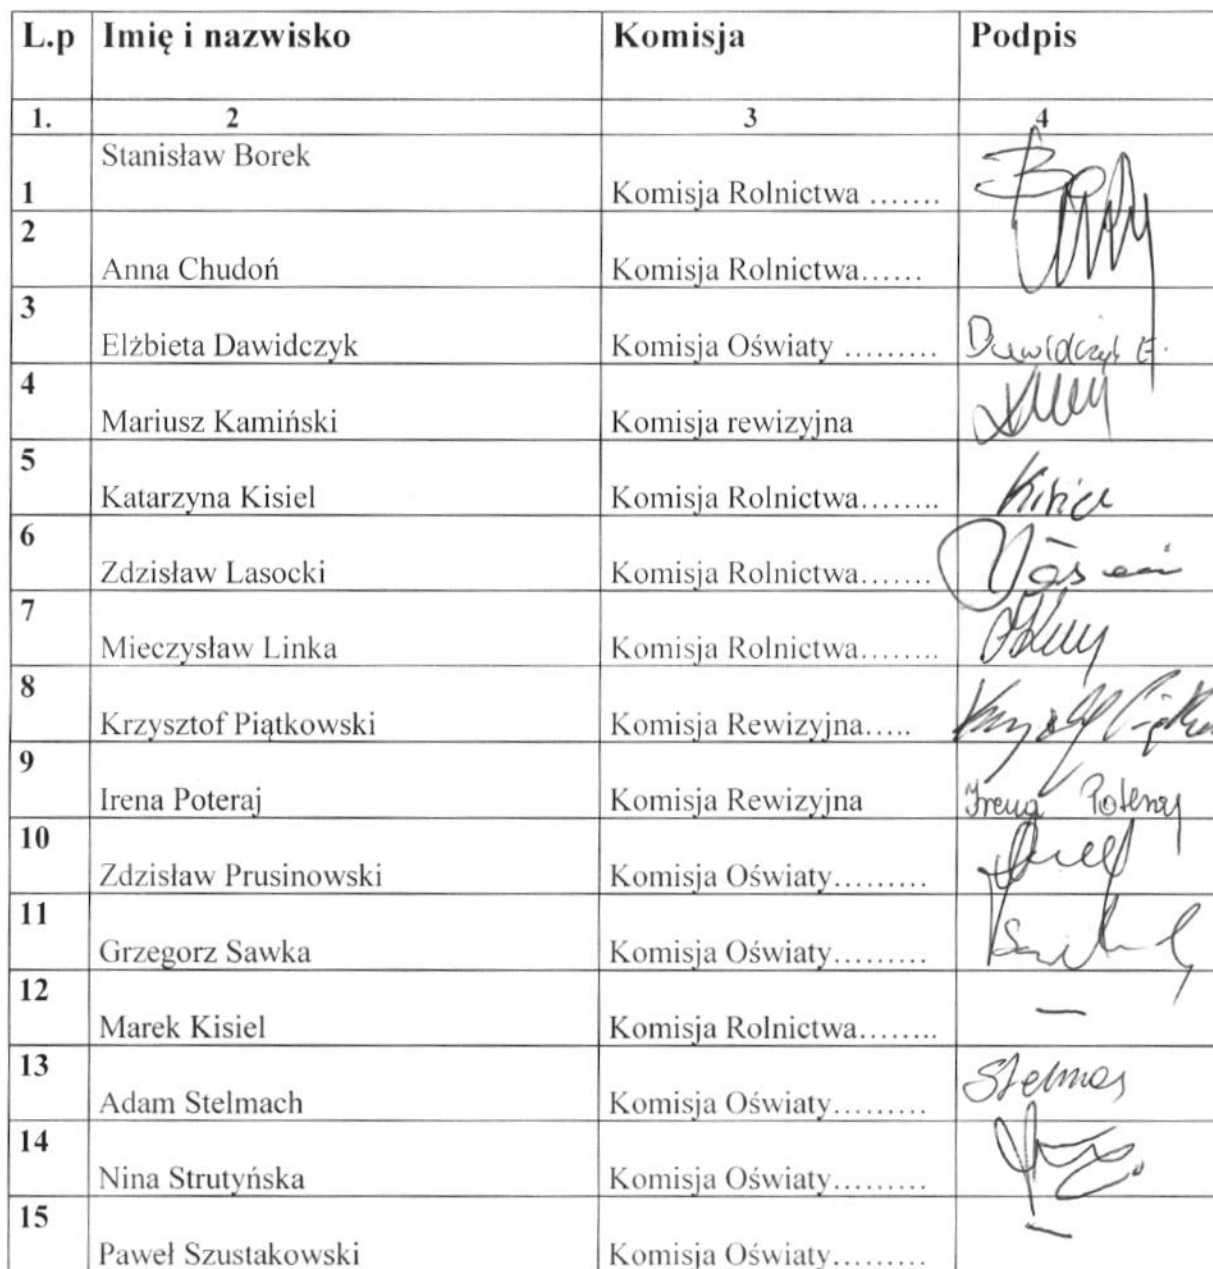 L.p Imię i nazwisko Komisja Podpis
1. 2 3 4
1 Stanisław Borek Komisja Rolnictwa …….
2 Anna Chudoń Komisja Rolnictwa……
3 Elżbieta Dawidczyk Komisja Oświaty ……… Dawidczyk E.
4 Mariusz Kamiński Komisja rewizyjna
5 Katarzyna Kisiel Komisja Rolnictwa…….. Kisiel
6 Zdzisław Lasocki Komisja Rolnictwa…….
7 Mieczysław Linka Komisja Rolnictwa……..
8 Krzysztof Piątkowski Komisja Rewizyjna…..
9 Irena Poteraj Komisja Rewizyjna Irena Poteraj
10 Zdzisław Prusinowski Komisja Oświaty………
11 Grzegorz Sawka Komisja Oświaty………
12 Marek Kisiel Komisja Rolnictwa…….. —
13 Adam Stelmach Komisja Oświaty………
14 Nina Strutyńska Komisja Oświaty………
15 Paweł Szustakowski Komisja Oświaty……… —